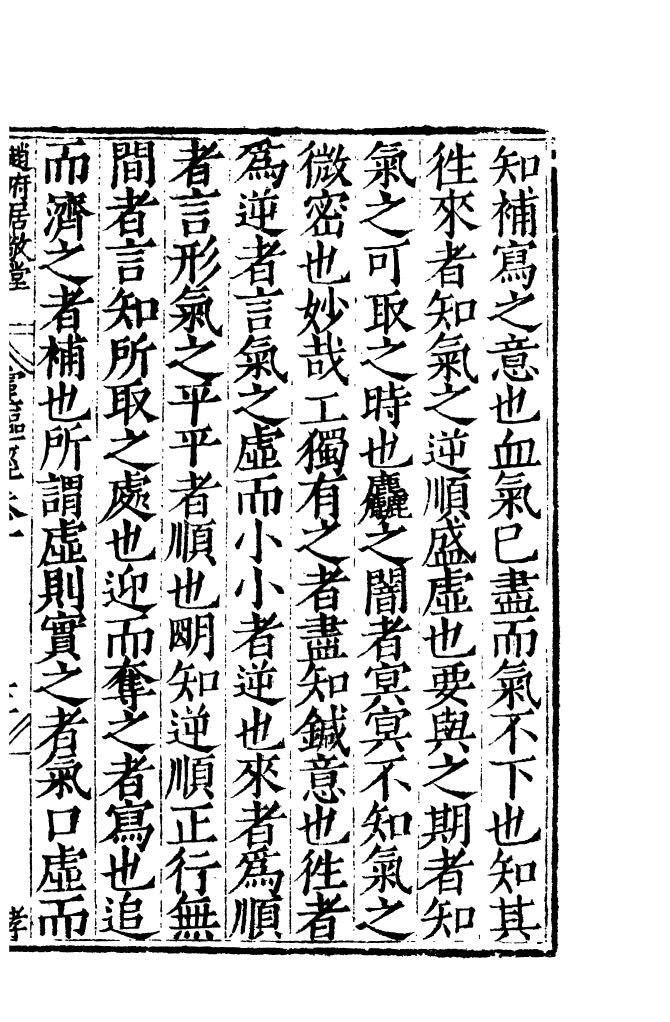 知補寫之意也血氣已盡而氣不下也知其
徃來者知氣之逆順盛虛也要與之期者知
氣之可取之時也麤之闇者冥冥不知氣之
微密也妙哉工獨有之者盡知鍼意也徃者
爲逆者言氣之虛而小小者逆也來者爲順
者言形氣之平平者順也明知逆順正行無
間者言知所取之處也迎而奪之者寫也追
而濟之者補也所謂虛則實之者氣口虛而
趙府居敬堂